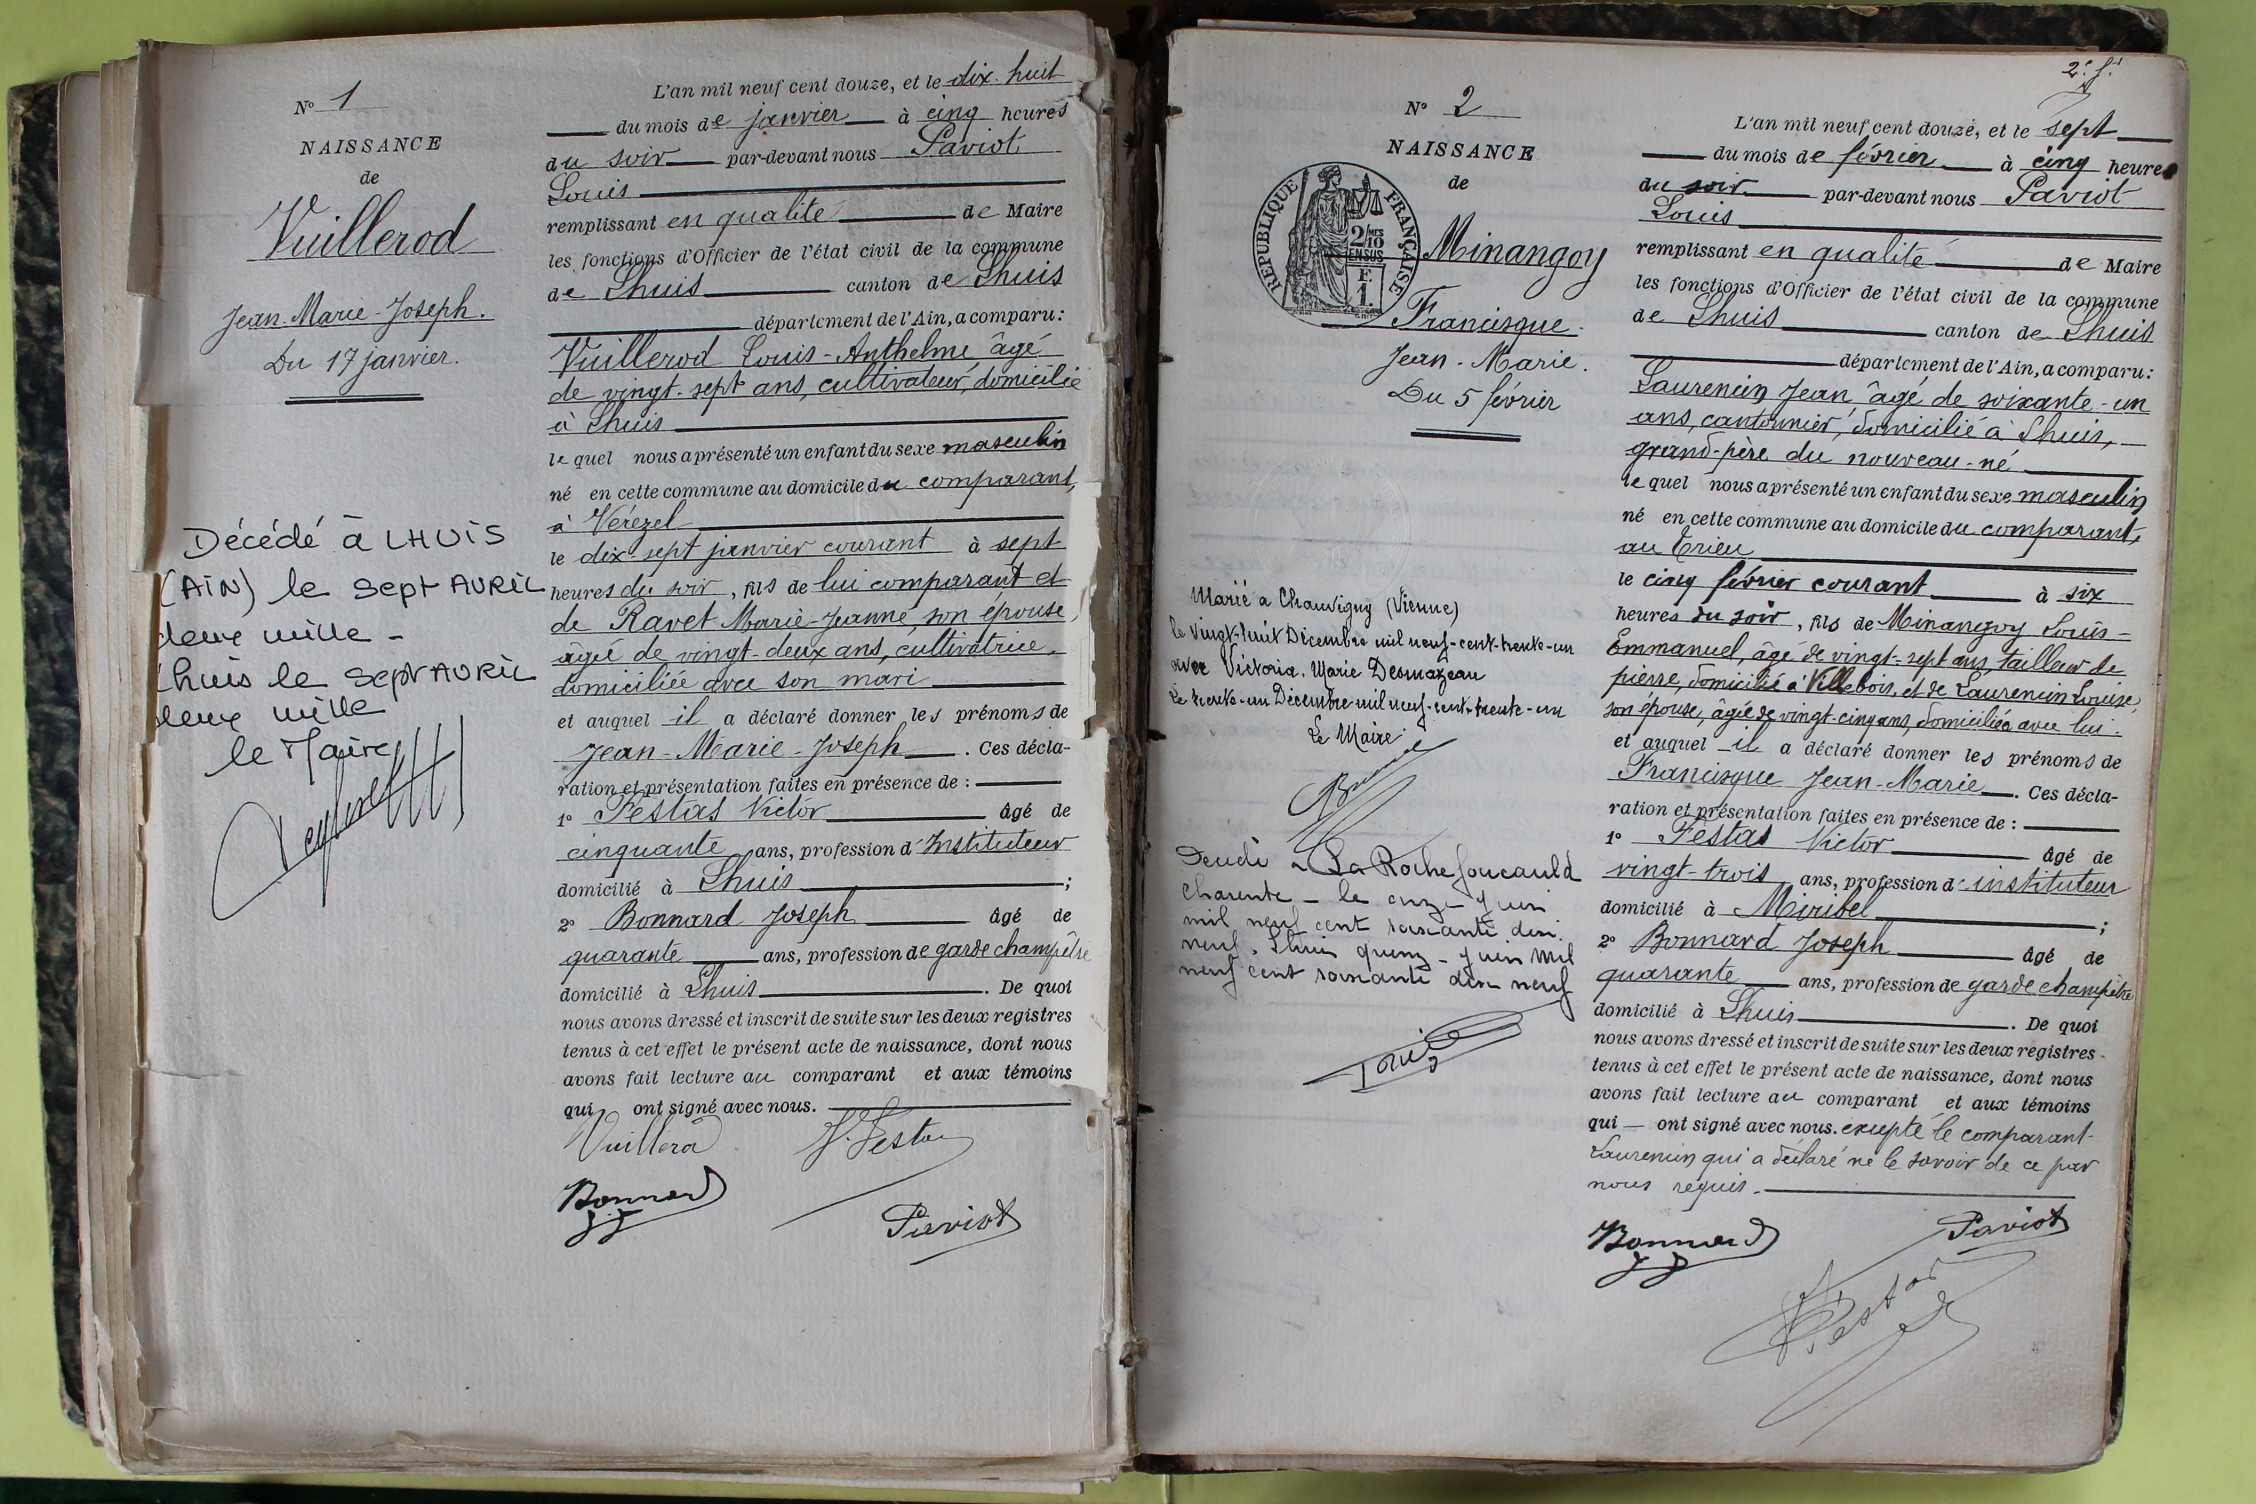 N° 1
NAISSANCE
de
Vuillerod
Jean-Marie-Joseph.
Du 17 janvier.
Décédé à LHUIS
(AIN) le sept AVRIL
deux mille -
Lhuis le sept AVRIL
deux mille
le Maire
L'an mil neuf cent douze, et le dix-huit
du mois de janvier à cinq heures
du soir par-devant nous Paviot
Louis
remplissant en qualité de Maire
les fonctions d'Officier de l'état civil de la commune
de Lhuis canton de Lhuis
département de l'Ain, a comparu:
Vuillerod Louis-Anthelme âgé
de vingt-sept ans, cultivateur, domicilié
à Lhuis
lequel nous a présenté un enfant du sexe masculin
né en cette commune au domicile du comparant,
à Verezel
le dix-sept janvier courant à sept
heures du soir, fils de lui comparant et
de Ravet Marie-Jeanne, son épouse,
âgée de vingt-deux ans, cultivatrice,
domiciliée avec son mari
et auquel il a déclaré donner les prénoms de
Jean-Marie-Joseph. Ces décla-
ration et présentation faites en présence de :
1° Festas Victor âgé de
cinquante ans, profession d'Instituteur
domicilié à Lhuis ;
2° Bonnard Joseph âgé de
quarante ans, profession de garde champêtre
domicilié à Lhuis. De quoi
nous avons dressé et inscrit de suite sur les deux registres
tenus à cet effet le présent acte de naissance, dont nous
avons fait lecture au comparant et aux témoins
qui ont signé avec nous.
Vuillerod V. Festas
Bonnard
Paviot
2e f.t
N° 2
NAISSANCE
de
REPUBLIQUE FRANÇAISE
2/10 MES
EN SUS
F.
1.
Minangoy
Francisque
Jean-Marie.
Du 5 février
Marié à Chauvigny (Vienne)
le vingt-huit Décembre mil neuf-cent-trente-un
avec Victoria. Marie Desmazeau
Le trente-un Décembre mil neuf-cent-trente-un
Le Maire
Décédé à La Rochefoucauld
Charente - le onze juin
mil neuf cent soixante dix
neuf. Lhuis quinze juin mil
neuf cent soixante dix neuf
L'an mil neuf cent douze, et le sept
du mois de février à cinq heures
du soir par-devant nous Paviot
Louis
remplissant en qualité de Maire
les fonctions d'Officier de l'état civil de la commune
de Lhuis canton de Lhuis
département de l'Ain, a comparu:
Laurencin Jean âgé de soixante-un
ans, cantonnier, domicilié à Lhuis,
grand-père du nouveau-né
lequel nous a présenté un enfant du sexe masculin
né en cette commune au domicile du comparant,
au Crieu
le cinq février courant à six
heures du soir, fils de Minangoy Louis-
Emmanuel, âgé de vingt-sept ans, tailleur de
pierre, domicilié à Villebois, et de Laurencin Louise,
son épouse, âgée de vingt-cinq ans, domiciliée avec lui.
et auquel il a déclaré donner les prénoms de
Francisque Jean-Marie. Ces décla-
ration et présentation faites en présence de :
1° Festas Victor âgé de
vingt-trois ans, profession d'instituteur
domicilié à Miribel ;
2° Bonnard Joseph âgé de
quarante ans, profession de garde champêtre
domicilié à Lhuis. De quoi
nous avons dressé et inscrit de suite sur les deux registres
tenus à cet effet le présent acte de naissance, dont nous
avons fait lecture au comparant et aux témoins
qui ont signé avec nous. excepté le comparant
Laurencin qui a déclaré ne le savoir de ce par
nous requis.
Bonnard Paviot
V. Festas